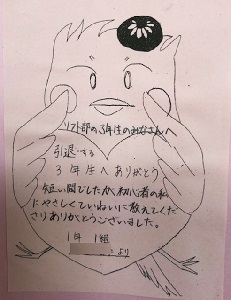 ソフト部の3年生のみなさんへ
引退する
3年生へありがとう
短い間でしたが、初心者の私
にやさしくていねいに教えてくだ
さりありがとうございました。
1年 1組
より